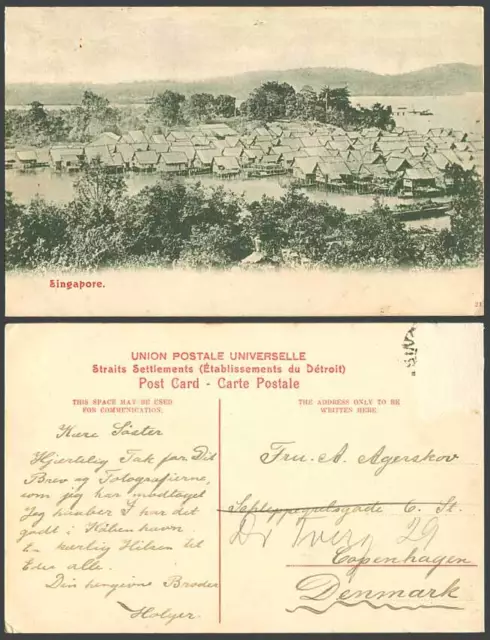 Singapore.
21
UNION POSTALE UNIVERSELLE
Straits Settlements (Établissements du Détroit)
Post Card - Carte Postale
THIS SPACE MAY BE USED
FOR COMMUNICATION.
THE ADDRESS ONLY TO BE
WRITTEN HERE
Kære Söster
Hjertelig Tak for Dit
Brev og Fotografierne,
som jeg har modtaget
Jeg haaber I har det
godt i Köbenhavn.
En kærlig Hilsen til
Eder alle.
Din hengivne Broder
Holger
Fru. A. Agerskov
6. St.
29
Copenhagen
Denmark